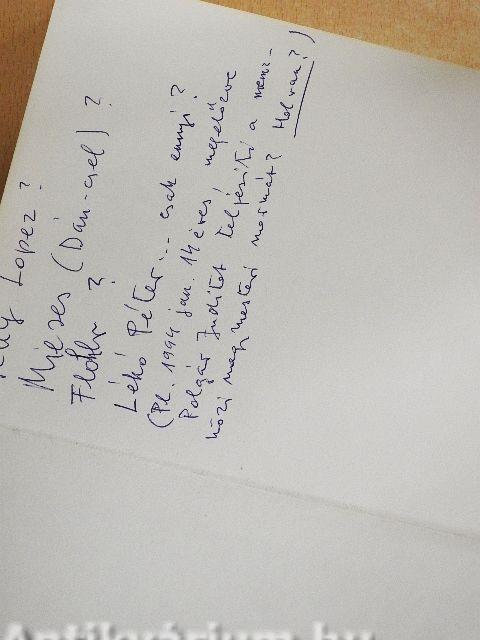 Ruy Lopez?
Mieses (Dán-csel)?
Flohr?
Lékó Péter... csak ennyi?
(Pl. 1994 jan. 14 éves, megelőzve
Polgár Juditot teljesíti a nemzet-
közi nagymesteri normát? Hol van?)
Antikvárium.hu